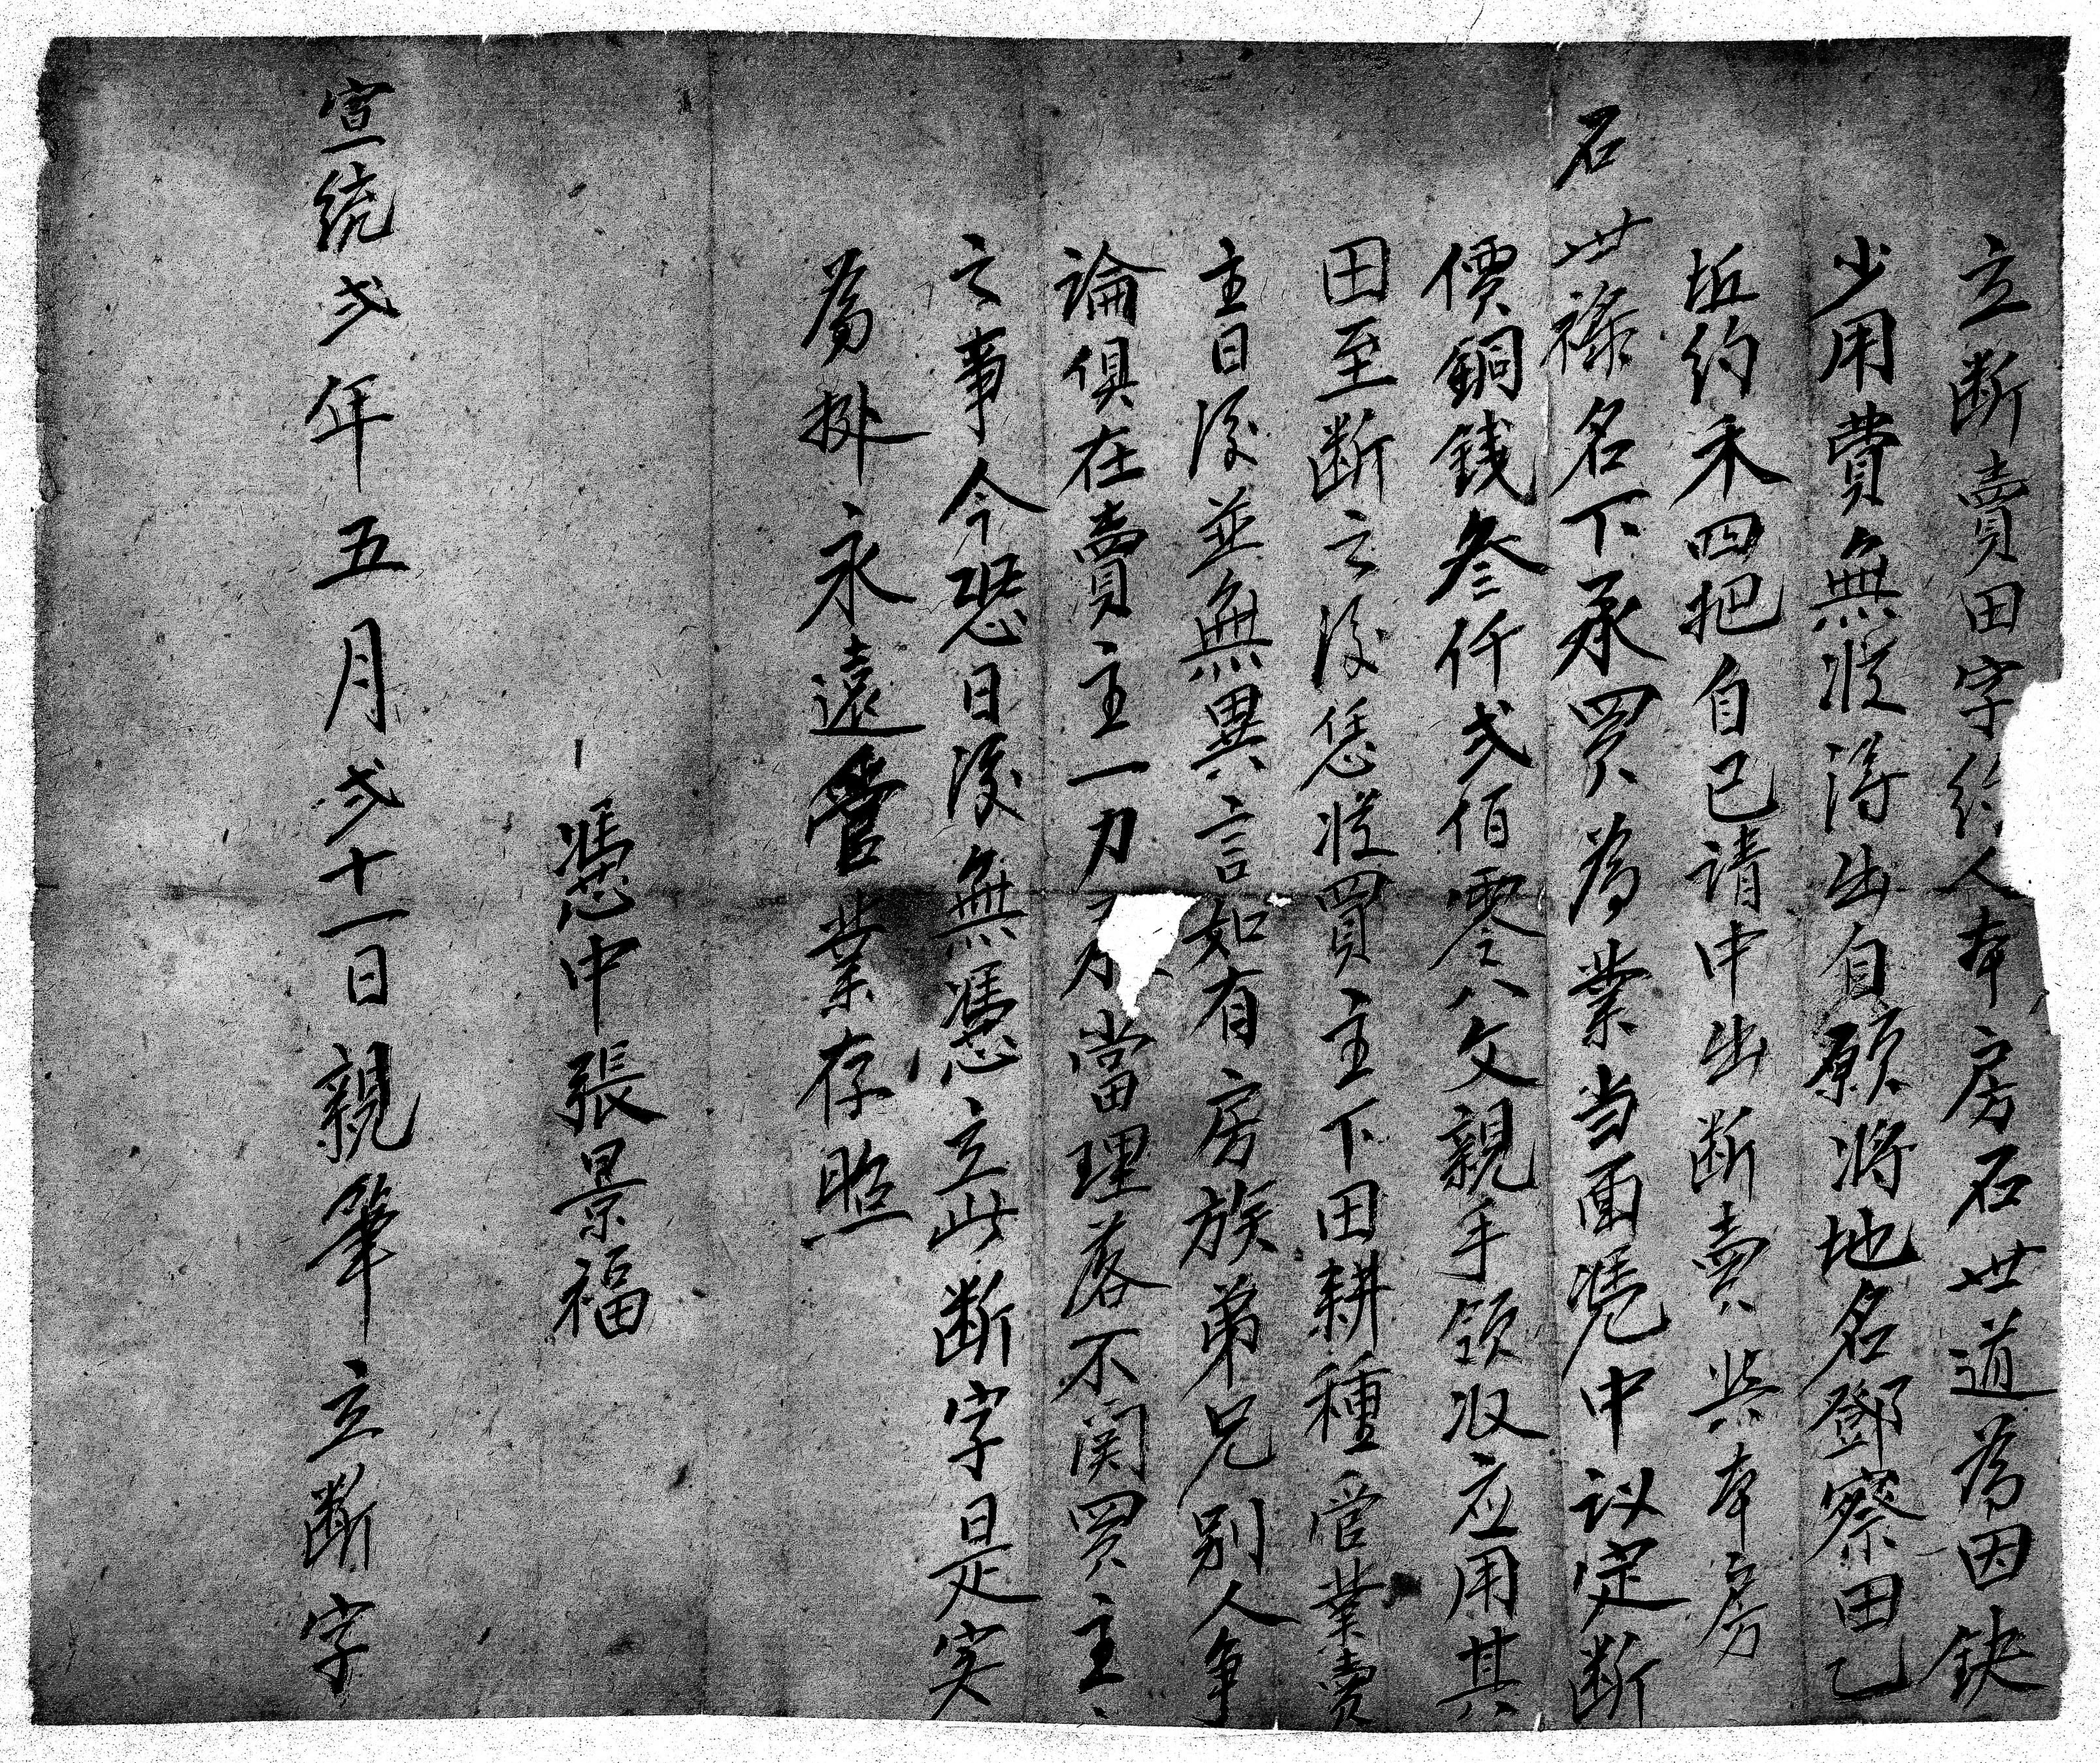 立断賣田字約人本房石世道為因鈌
少用費無從淂出自願將地名鄧寨田乙
坵約禾四把自己请中出断賣與本房
石世祿名下承買為業当面凭中议定断
價銅錢叁仟弍佰零八文親手領収应用其
田至断之後恁從買主下田耕種管業賣
主日後並無異言如有房族弟兄別人争
論俱在賣主一力承當理落不関買主
之事今恐日後無憑立此断字是实
為挑永遠管業存照
憑中張景福
宣統弍年五月弍十一日親筆立断字